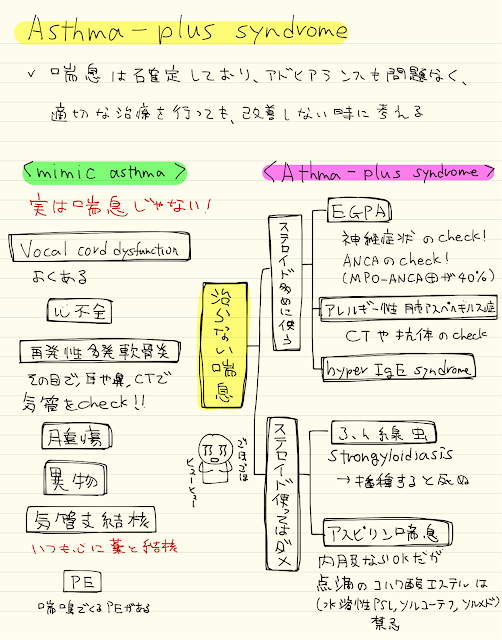 Asthma-plus syndrome
✓ 喘息は確定しており、アドヒアランスも問題なく、
適切な治療を行っても、改善しない時に考える
<mimic asthma>
実は喘息じゃない!
Vocal cord dysfunction
よくある
心不全
再発性多発軟骨炎
その目で、耳や鼻、CTで
気管をcheck!!
腫瘍
異物
気管支結核
いつも心に薬と結核
PE
喘鳴でくるPEがある
治らない喘息
ごほごほ
ヒューヒュー
<Athma-plus syndrome>
ステロイド多めに使う
EGPA
神経症状のcheck!
ANCAのcheck!
(MPO-ANCA⊕が40%)
アレルギー性肺アスペルギルス症
CTや抗体のcheck
hyper IgE syndrome
ステロイド使ってはダメ
ふん線虫
Strongyloidiasis
→播種すると死ぬ
アスピリン喘息
内服ならOKだが
点滴のコハク酸エステルは
(水溶性PSL,ソルコーテフ,ソルメド)
禁忌